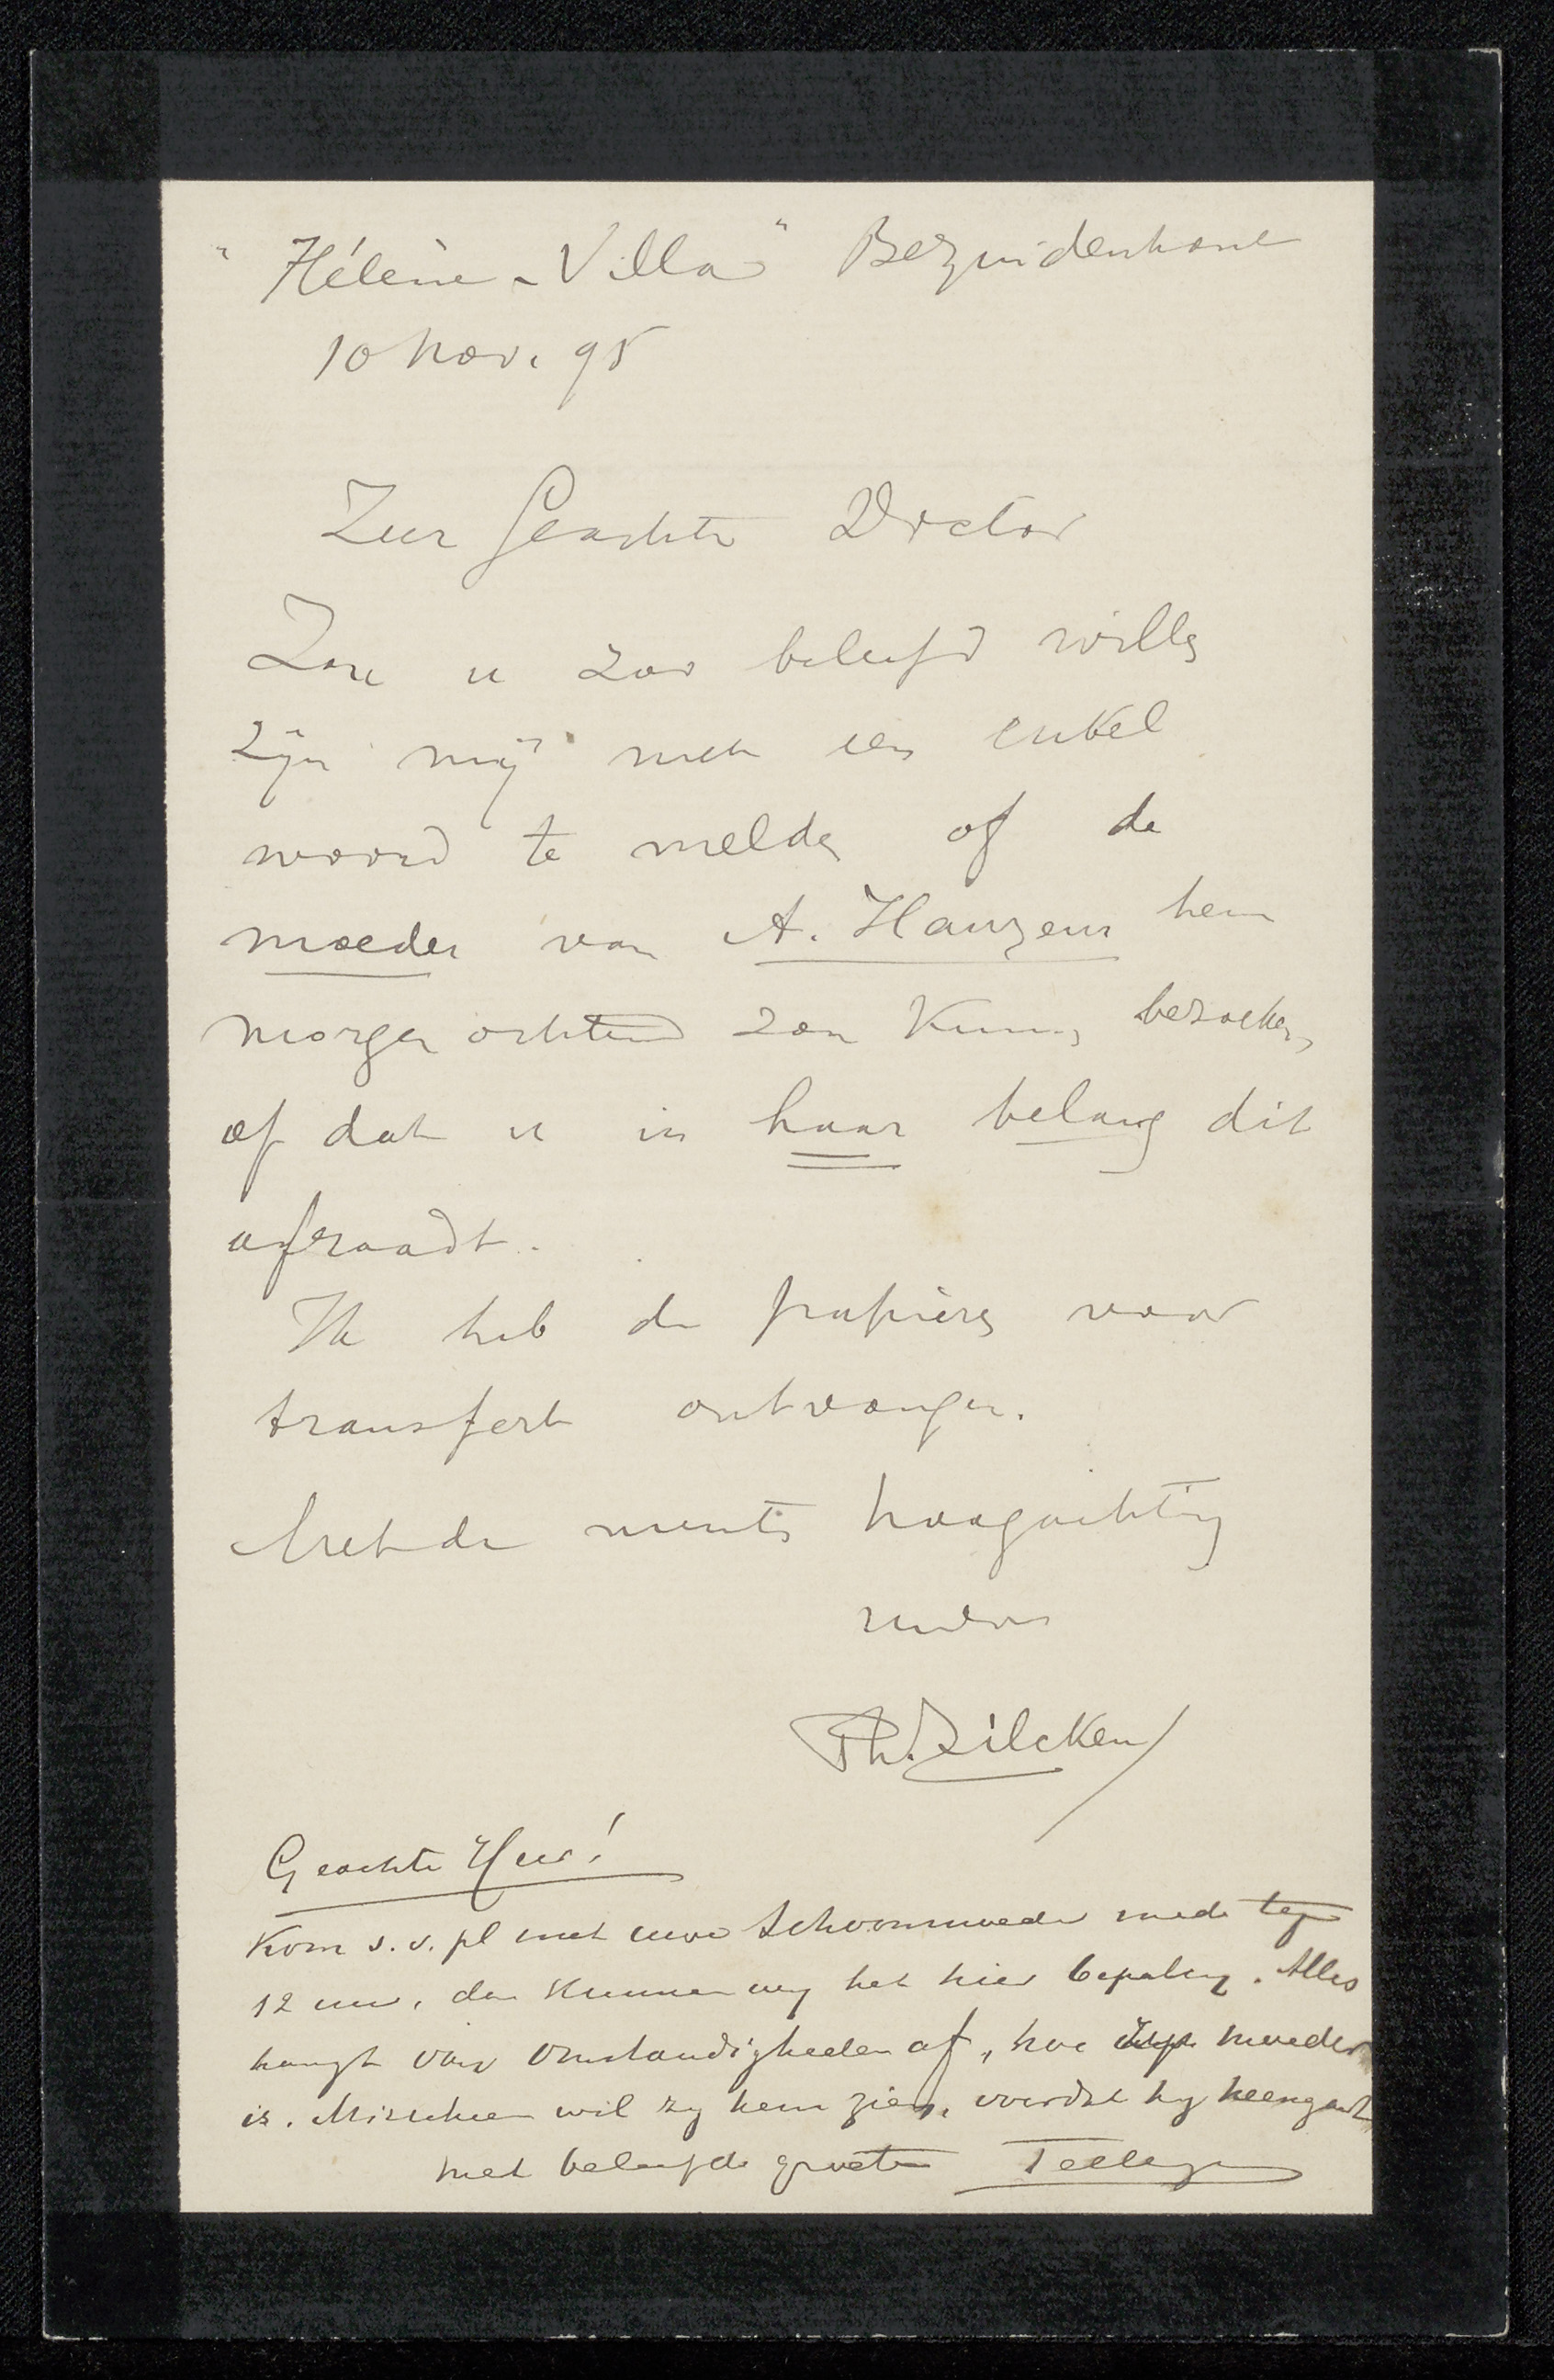 "Hélène-Villa" Bezuidenhout
10 Nov. 95
Zeer Geachte Doctor
Zou u zoo beleefd willen
zijn mij met een enkel
woord te melden of de
moeder van A. Hauzeur hem
morgen ochtend zou kunnen bezoeken,
of dat u in haar belang dit
afraadt.
Ik heb de papieren voor
transfert ontvangen.
Met de meeste hoogachting
Ph. Zilcken
Geachte Heer!
Kom s.v.pl met uwe schoonmoeder mede tegen
12 uur, dan kunnen wij het hier bepalen. Alles
hangt van omstandigheden af, hoe moeder
is. Misschien wil zij hem zien, voordat hij heengaat
met beleefde groeten